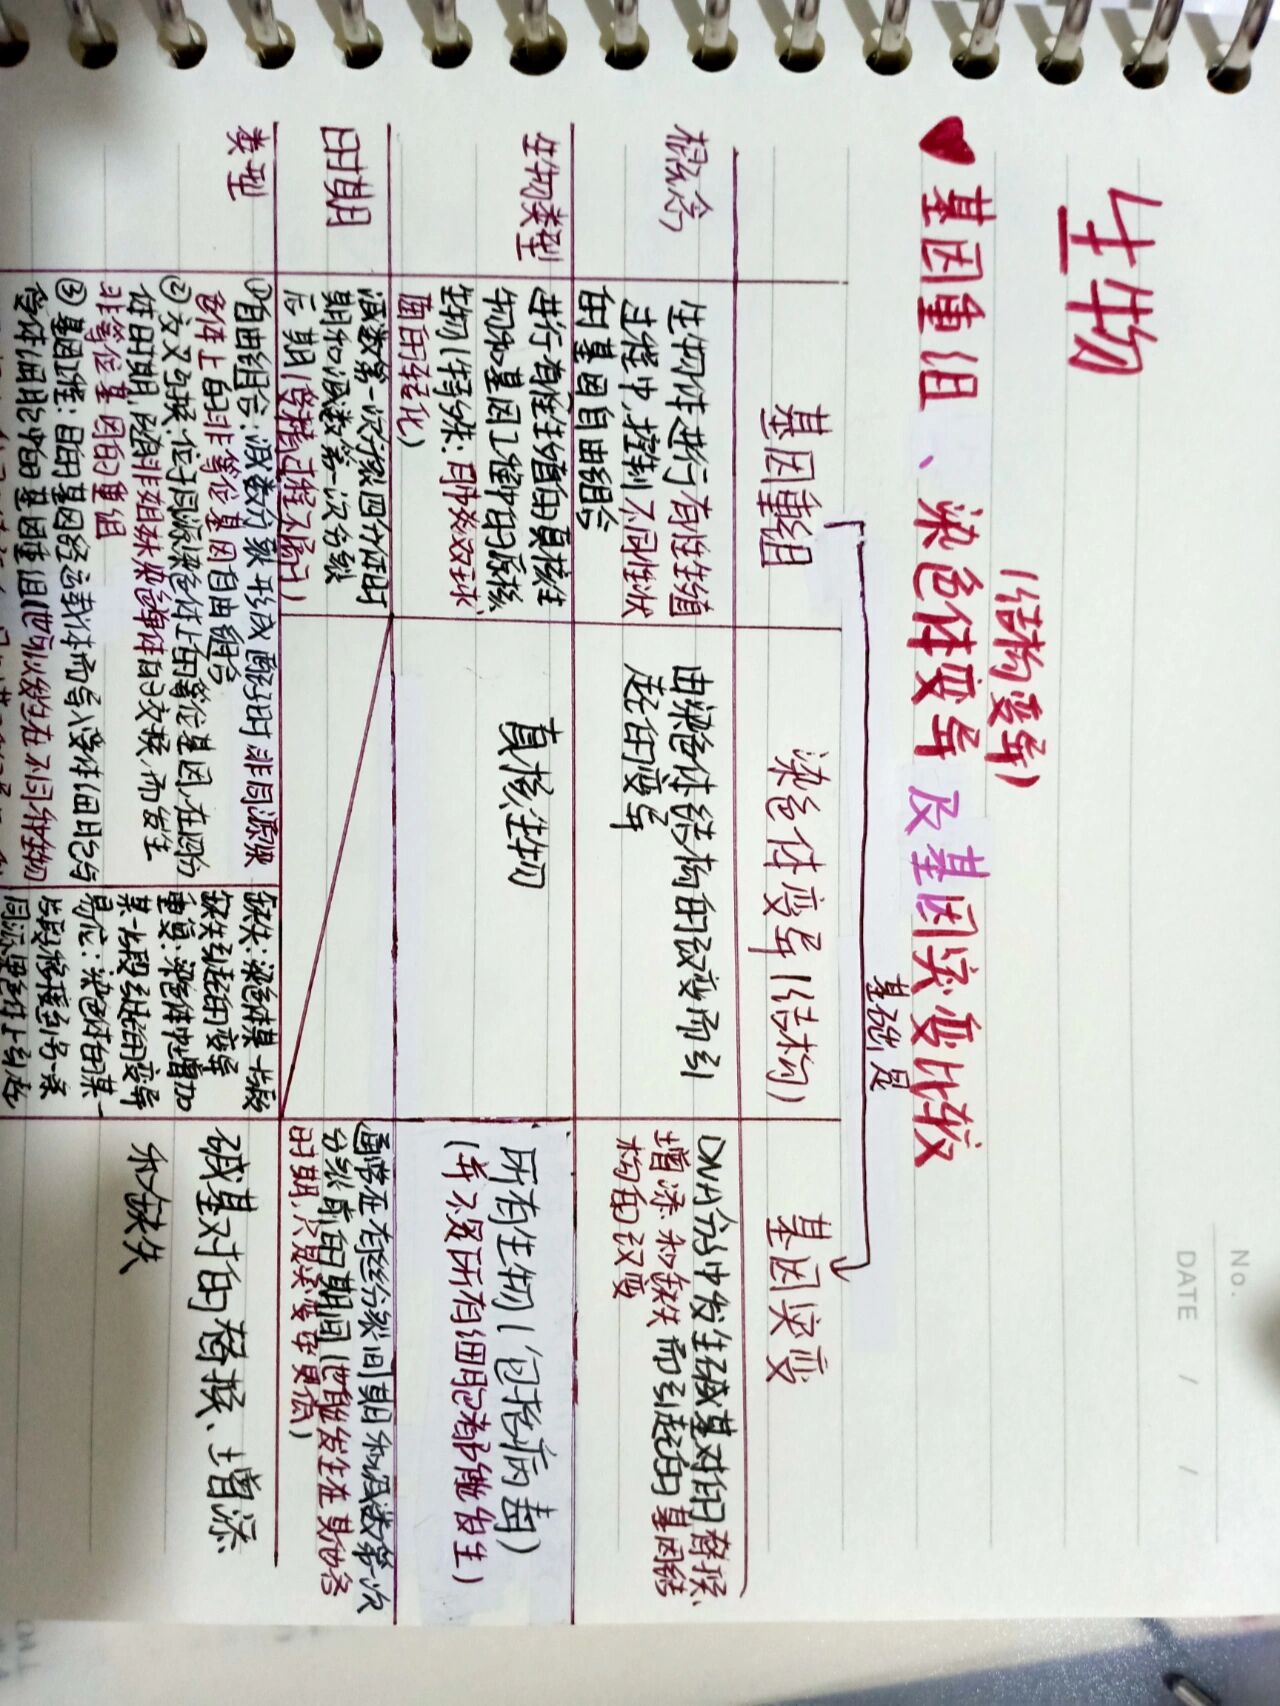 No.
DATE / /
生物
(结构变异)
♥基因重组、染色体变异及基因突变比较
基础是
基因重组
染色体变异(结构)
基因突变
概念
生物体进行有性生殖
过程中,控制不同性状
的基因自由组合
由染色体结构的改变而引
起的变异
DNA分子中发生碱基对的替换、
增添和缺失而引起的基因结
构的改变
生物类型
进行有性生殖的真核生
物和基因工程中的原核
生物(特殊:肺炎双球
菌的转化)
真核生物
所有生物(包括病毒)
(并不是所有细胞都能发生)
时期
减数第一次分裂四分体时
期和减数第一次分裂
后期(受精过程不属于)
通常在有丝分裂间期和减数第一次
分裂前的期间(也能发生在其他各
时期,只是突变率更低)
类型
①自由组合:减数分裂形成配子时非同源染
色体上的非等位基因自由组合
②交叉互换:位于同源染色体上的等位基因在四分
体时期,随着非姐妹染色单体的交换而发生
非等位基因的重组
③基因工程:目的基因经运载体而导入受体细胞与
受体细胞中的基因重组(也可以发生在不同种生物
缺失:染色体某一片段
缺失引起的变异
重复:染色体中增加
某一片段引起的变异
易位:染色体的某一
片段移接到另一条
碱基对的替换、增添
和缺失